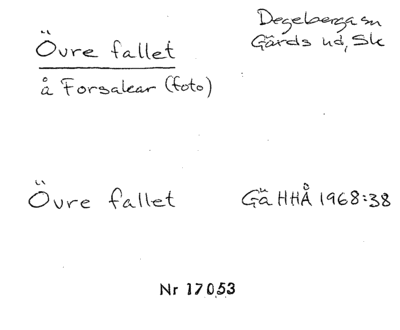 Övre fallet
Degeberga sn
Gärds hd, Sk
å Forsakar (foto)
Övre fallet
Gä HHÅ 1968:38
Nr 17053